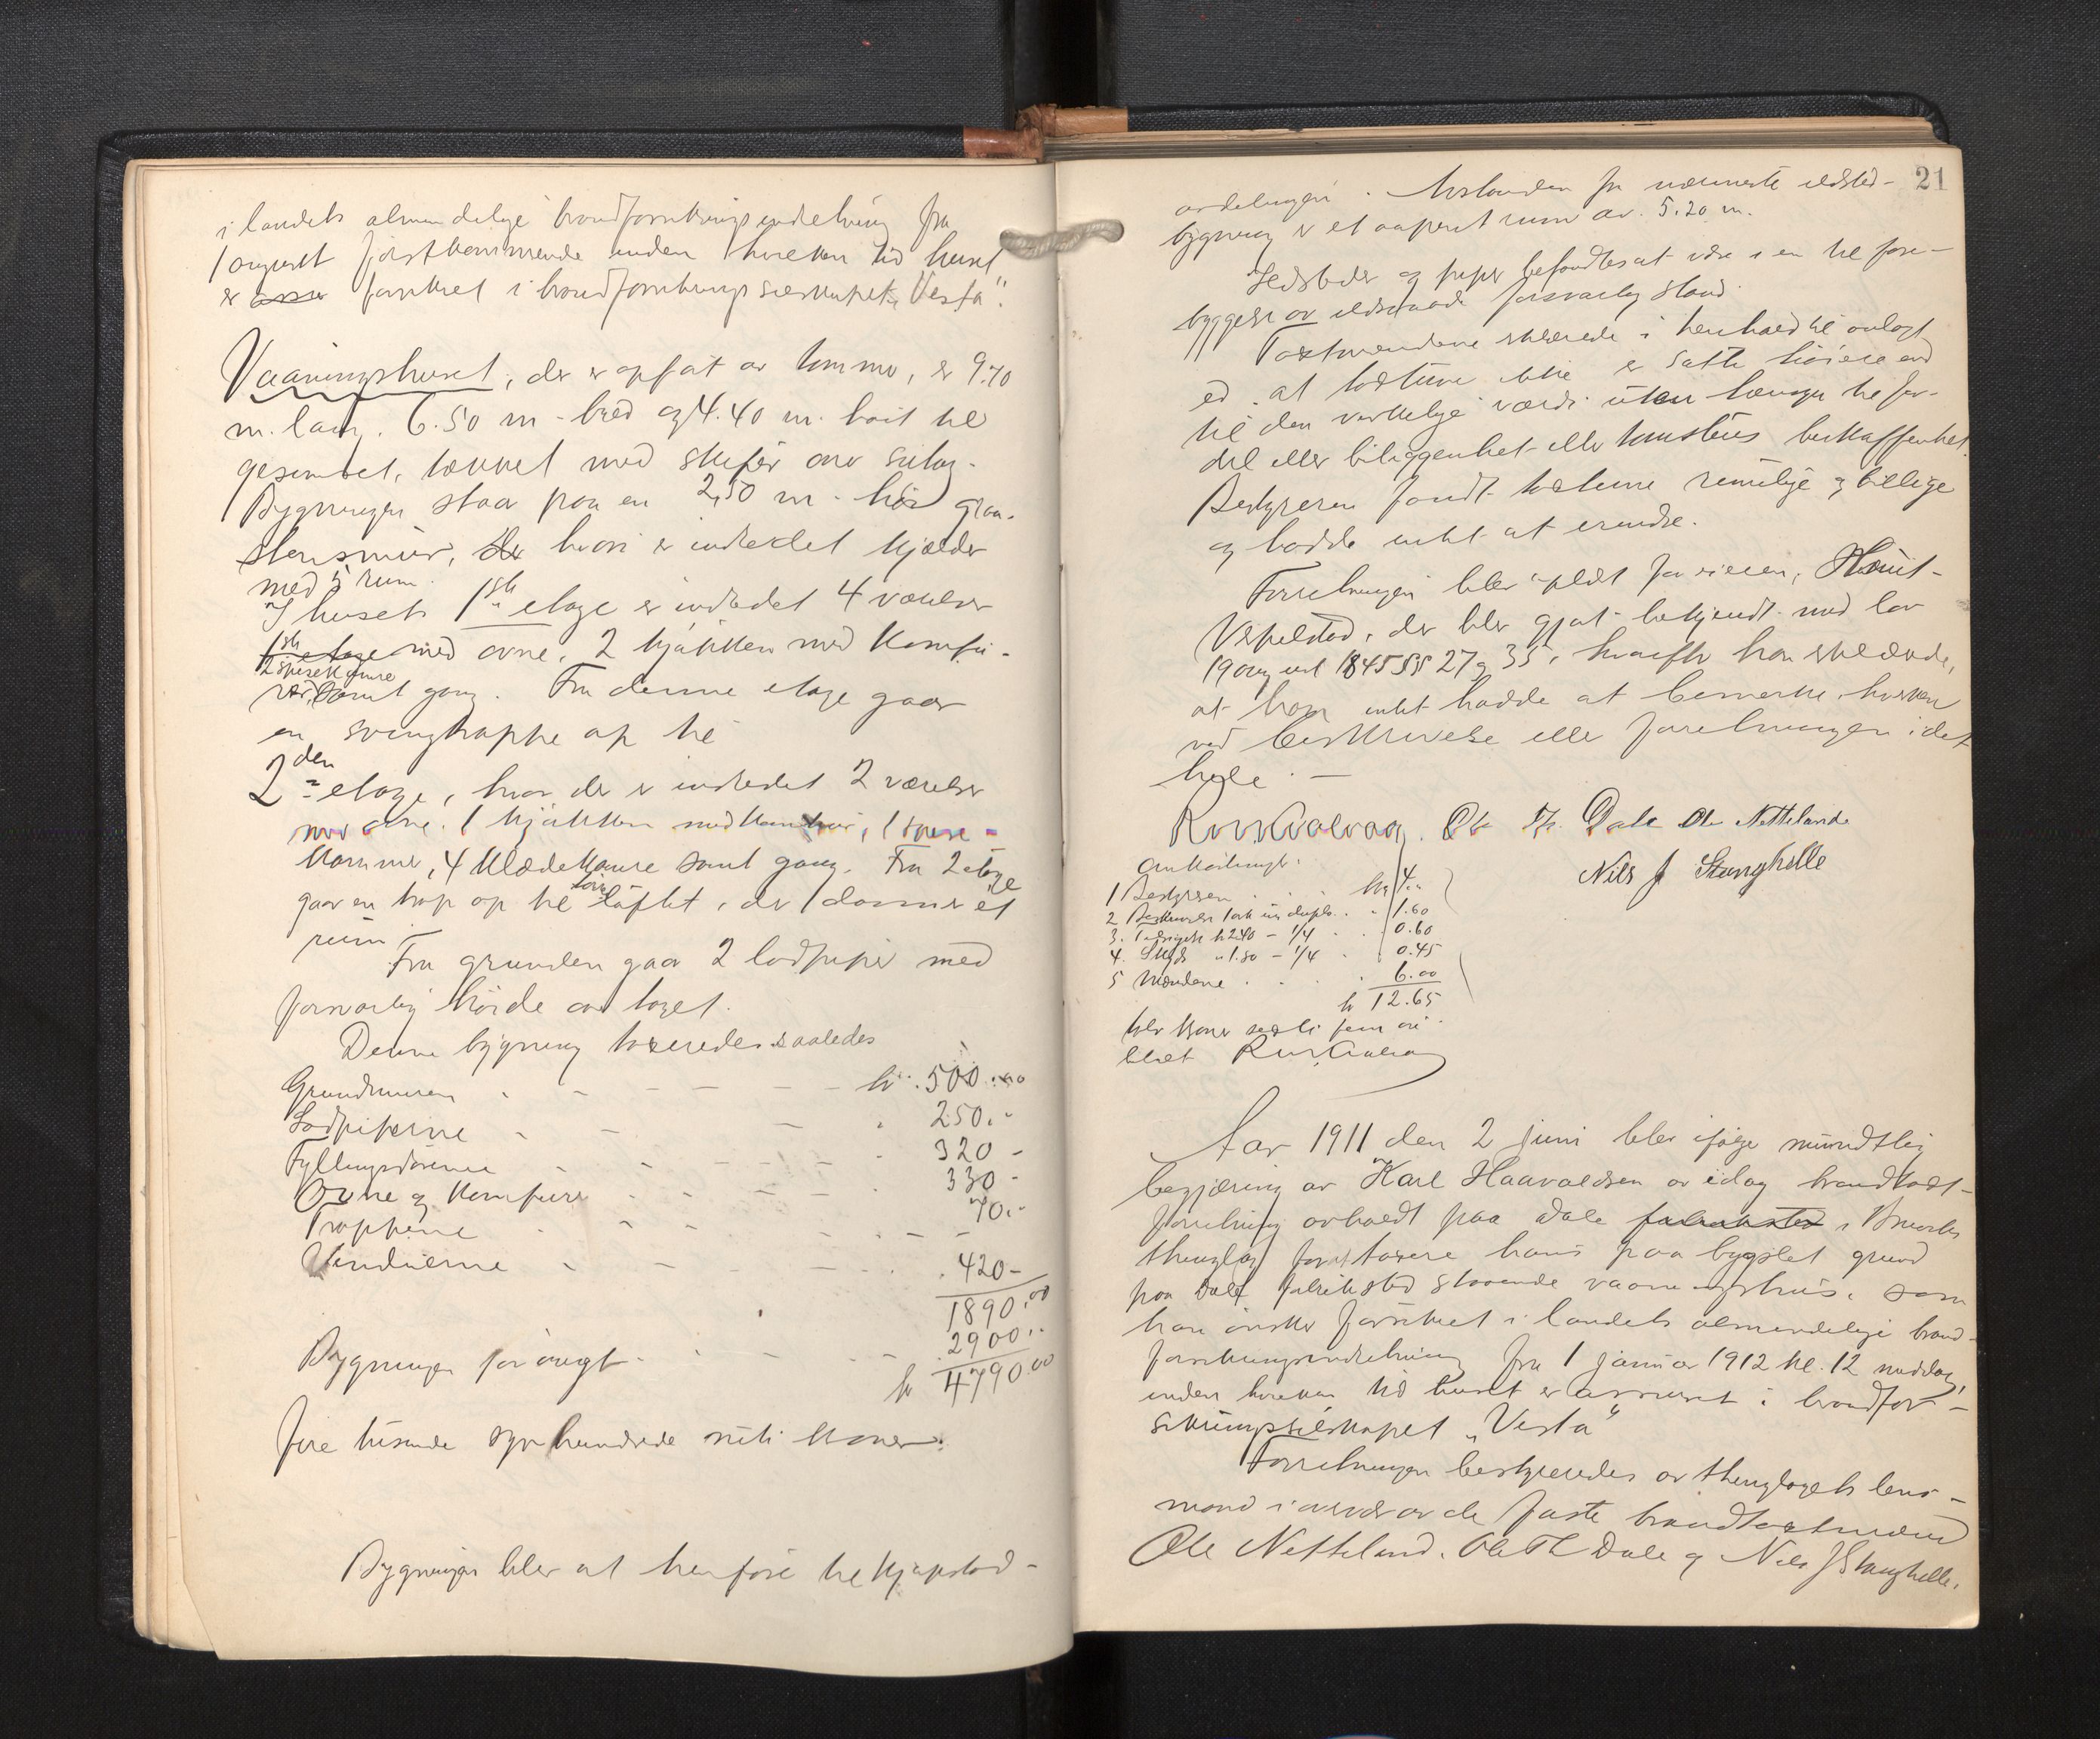 i landets almindelige brandforsikringsindretning fra
1 august førstkommende inden hvilken tid huset
er forsikret i brandforsikringsselskapet "Vesta".
Vaaningshuset, der er opført av tømmer, er 9.70
m. lang, 6.50 m. bred og 4.40 m. høit til
gesimset, tækket med skifer over sutag.
Bygningen staar paa en 2,50 m. høi graa-
stensmur, hvori er indredet kjælder
med 5 rum.
I husets 1ste etage er indredet 4 værelser
1ste etage med ovne, 2 kjøkken med komfu-
2 spisekamre
samt gang. Fra denne etage gaar
en svingtrappe op til
2den etage, hvor der er indredet 2 værelser
med ovne, 1 kjøkken med komfur, 1 spise-
kammer, 4 klædekamre samt gang. Fra 2 etage
gaar en trap op til loftet, der danner et
rum.
Fra grunden gaar 2 lodpiper med
forsvarlig høide over taget.
Denne bygning taxeredes saaledes
Grundmuren kr. 500.00
Lodpiperne 250.-
Fyllingsdørene 320 -
Ovne og komfurer 330 -
Trappene 70.-
Vinduerne 420 -
1890.00
Bygningen forøvrigt 2900..
kr 4790.00
fire tusinde syv hundrede nitti kroner.
Bygningen blev at henføre til kjøpstad-
21
avdelingen. Avstanden fra nærmeste ildsted-
bygning er et aapent rum av 5.20 m.
Ildsteder og piper befandtes at være i en til fore-
byggelse av ildsvaade forsvarlig stand.
Taxtmændene erklærede i henhold til avlagt
ed, at taxterne ikke er satte høiere end
til den virkelige værdi uten hensyn til for-
del eller beliggenhet eller kunstens beskaffenhet.
Bestyreren fandt taxterne rimelige og billige
og hadde intet at erindre.
Forretningen blev oplæst for eieren, Knut
Vespelstad, der blev gjort bekjendt med lov
19 august 1845 §§ 27 og 35, hvorefter han erklærede,
at han intet hadde at bemerke hverken
ved beskrivelse eller forretningen i det
hele. —
Ole Th. Dale Ole Nettelande
Nils J Stanghelle
Omkostninger:
1 Bestyreren kr 4.-
2 Beskrivelse 1 ark in duplo 1.60
3. kr 2.40 - 1/4 0.60
4. Skyds " 1.80 - 1/4 0.45
5 Mændene 6.00
kr 12.65
tolv kroner seksti fem øre
Aar 1911 den 2 juni blev ifølge mundtlig
begjæring av Karl Haavaldsen av idag brandtaxt-
forretning avholdt paa Dale fabriksted i Bruvik
thinglag for at taxere hans paa bygslet grund
paa Dale fabriksted staaende vaaningshus, som
han ønsker forsikret i landets almindelige brand-
forsikringsindretning fra 1 januar 1912 kl. 12 middag,
inden hvilken tid huset er assureret i brandfor-
sikringsselskapet "Vesta"
Forretningen bestyredes av thinglagets lens-
mand i overvær av de faste brandtaxtmænd
Ole Netteland, Ole Th Dale og Nils J Stanghelle.